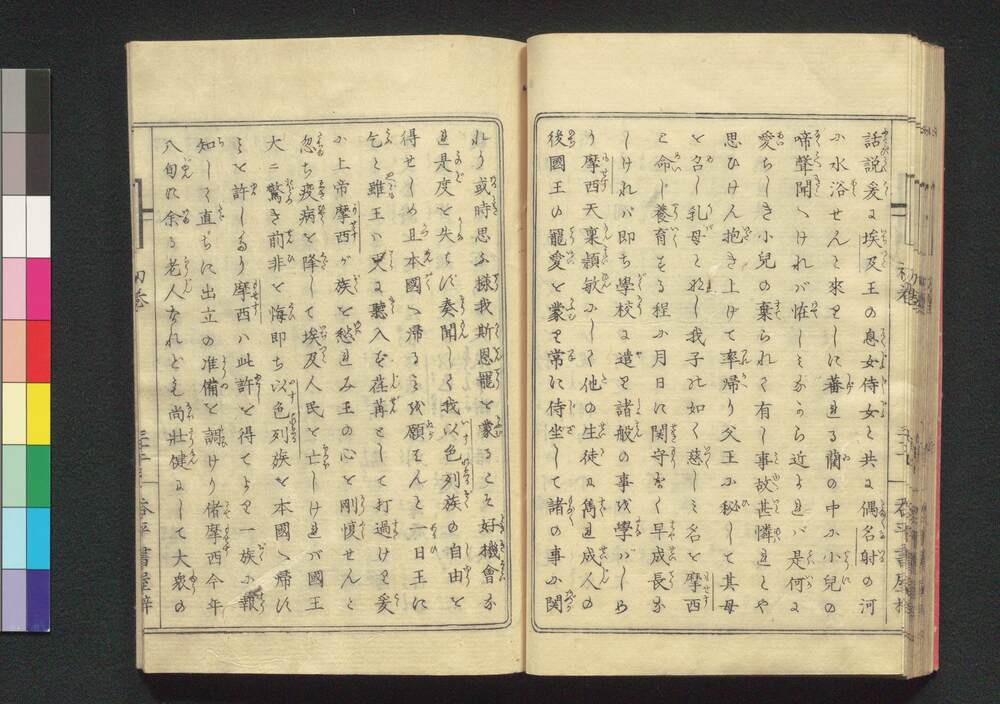 話説爰に埃及王の息女侍女と共に偶名射の河
に水浴せんと來をしに蕃れる蘭の中に小兒の
啼聲聞ゝけれバ恠しミながら近よれバ是何に
愛らしき小兒の棄られて有し事故甚憐れとや
思ひけん抱き上けて率帰り父王に秘して其母
を召し乳母となし我子の如く慈しミ名を摩西
と命じ養育する程に月日に関守なく早成長な
しけれバ即ち學校に遣を諸般の事を學バしめ
う摩西天稟頴敏にして他の生徒に雋れ成人の
後國王の寵愛を蒙て常に侍坐して諸の事に関
れり或時思ふ様我斯恩寵を蒙るこそ好機會な
れ是度を失ハず奏聞して我以色列族の自由を
得せしめ且本國へ帰るミを願をんと一日王に
乞と雖王ハ更に聽入を荏苒として打過けを爰
に上帝摩西が族を愁れみ王の心を剛愎せんと
忽ち疫病を降して埃及人民を亡しけれバ國王
大ニ驚き前非を悔即ち以色列族を本國へ帰に
ミを許しゝより摩西ハ此許を得てよを一族に報
知して直ちに出立の准備を調けり偖摩西今年
八旬に余る老人なれども尚壯健にして大衆の
初巻